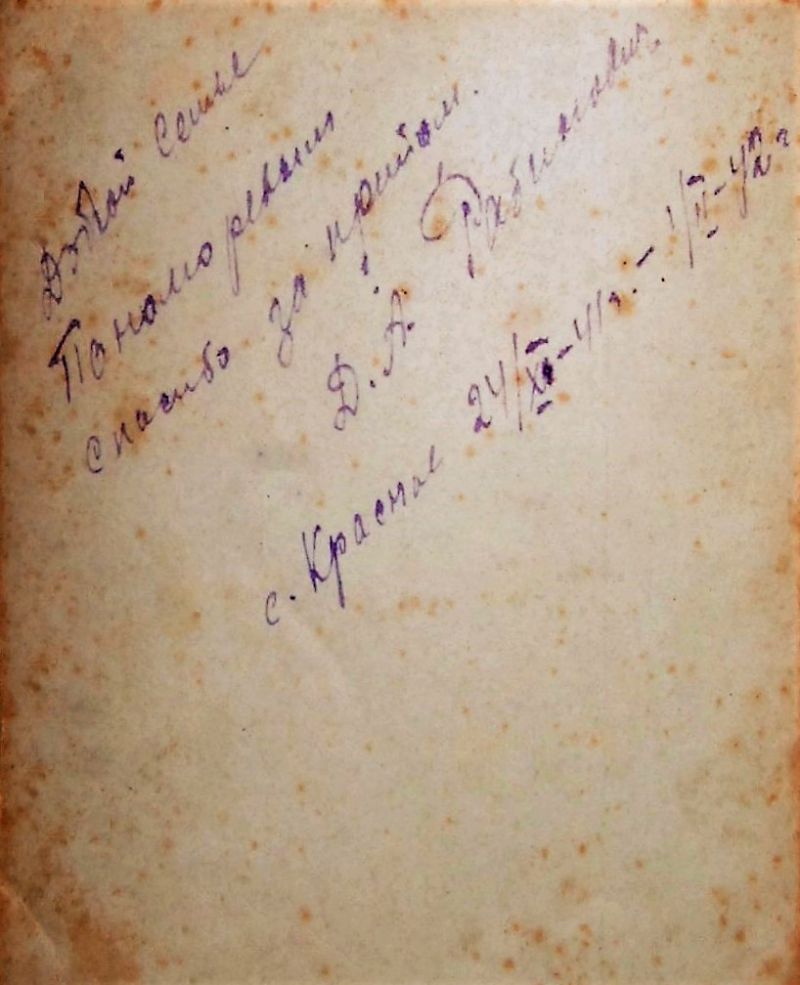 семье
Пономоревых
спасибо за приют.
Д. А. Рабинович
с. Красное 24/XI-41г. - 1/II-42г